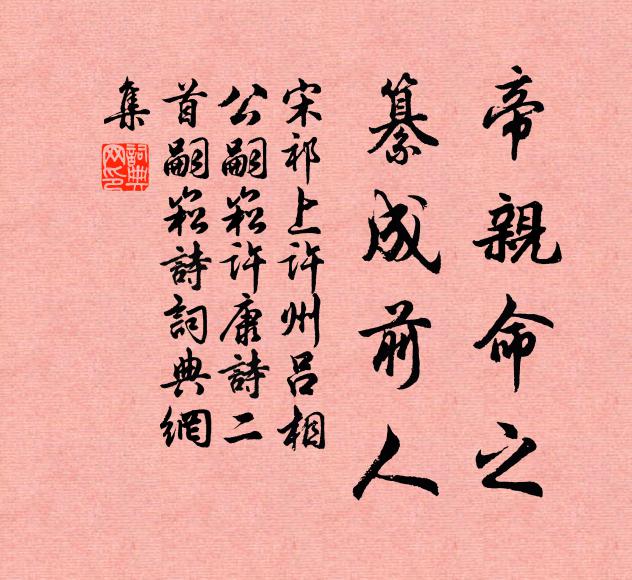 帝親命之
纂成前人
宋祁上許州呂相
公嗣崧許康詩二
首嗣崧詩詞典網
集
詞典网印